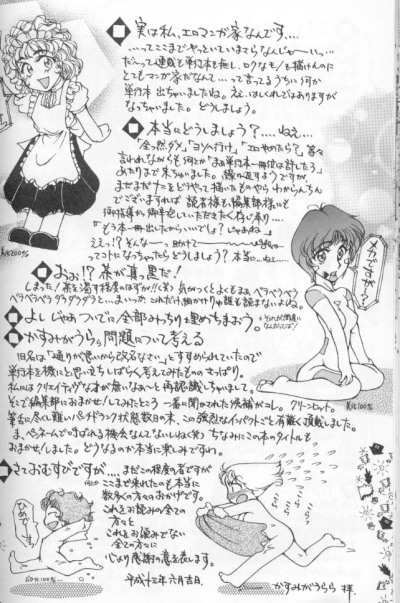 実は私、エロマンガ家なんです...
...ってここまでやっといていまさらなんじゃーいっ...
だいって連載も単行本も無し、ロクなモノも描けんのに
とてもマンガ家だなんて...って言ってるうちに何か
単行本 出ちゃいましたね。ええ、はしくれではありますが
なっちゃいました。どうしましょう。
本当にどうしましょう?....ねえ...
「全っ然ダメ」「ヨソへ行け」「エロやめたら?」等々
言われながらも何とか「まぁ単行本一冊位は許したろう」
あたりまで来ちゃいました。繰り返すようですが、
まだまだナニをどうやって描いたものやらわからんちん
でございますれば 読者様も編集部様にも
御指導の御手をいただきたく存じ来り....
「もう本一冊出したからいいでしょ?じゃあねー」
ええっ!?そんなーっ 助けてー
ってコトになっちゃったらどうしましょう?本当に...ねえ....
メカですが...?
美化100%
美化200%
おお!?茶が真っ黒だ!
しまった!茶を濁す程度のはずが!(笑)気がつくとよくもまぁベラベラベラ
ベラベラベラグダグダグダと...まぁいっか、これだけ細かけりゃ誰も読まないよねぇ。
よしじゃあついでに全部みっちりうめちまおう。
かすみがうら。問題について考える
旧名は「通りが悪いから改名なさい」とすすめられていたので
単行本を機にと思い立ちしばらく考えてみたもののさっぱり。
私にはクリエイティヴな才が無いなぁ~と再認識しちゃいまして。
そこで編集部におまかせ!してみたところ 一番に聞かれた候補がコレ。クリーンヒット。
筆舌に尽くし難いパンチドランク状態数日の末、この強烈なインパクトごと有難く頂戴しました。
ま、ペンネームでさばれる機会なんてないしね(笑) ちなみにこの本のタイトルも
おまかせ!しました。どうなるのか本当に楽しみですわ。
さておむすびですが....まだこの程度の者ですが
ここまで来れたのも本当に
数多くの方々のおかげです。
これをお読みの全ての
方々と
これをお読みでない
全ての方々に
心より感謝の意を表します。
平成十三年六月吉日
かすみがうらら 拝